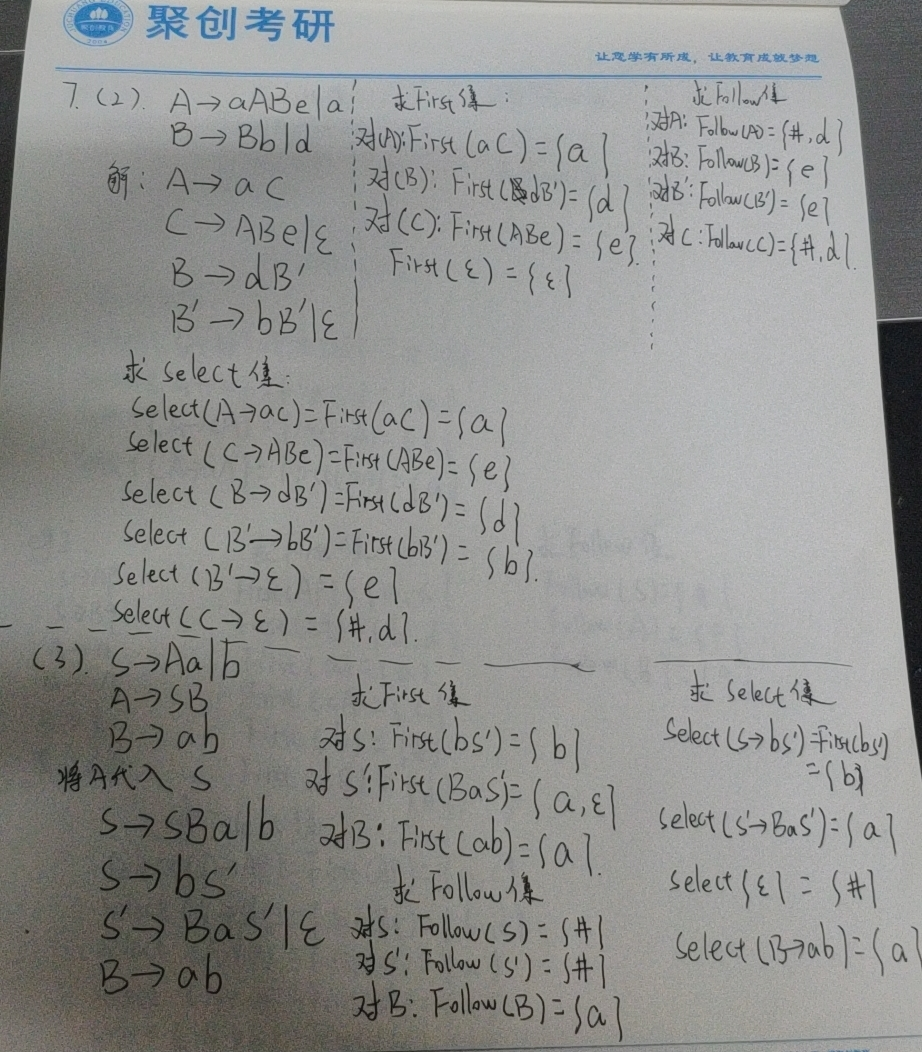 聚创考研
让您学有所成，让教育成就梦想
7.(2). A→aABe|a
B→Bb|d
解: A→aC
C→ABe|ε
B→dB′
B′→bB′|ε
求First集:
对(A):First(aC)={a}
对(B): First(dB′)={d}
对(C): First(ABe)={e}.
First(ε)={ε}
求Follow集
对A: Follow(A)={#,d}
对B: Follow(B)={e}
对B′: Follow(B′)={e}
对C:Follow(C)={#,d}.
求select集:
Select(A→aC)=First(aC)={a}
Select(C→ABe)=First(ABe)={e}
Select(B→dB′)=First(dB′)={d}
Select(B′→bB′)=First(bB′)={b}.
Select(B′→ε)={e}
Select(C→ε)={#,d}.
(3). S→Aa|b
A→SB
B→ab
将A代入S
S→SBa|b
S→bS′
S′→BaS′|ε
B→ab
求First集
对S: First(bS′)={b}
对S′:First(BaS′)={a,ε}
对B: First(ab)={a}.
求Follow集
对S: Follow(S)={#}
对S′: Follow(S′)={#}
对B: Follow(B)={a}
求Select集
Select(S→bS′)=First(bS′)
={b}
Select(S′→BaS′)={a}
Select{ε}={#}
Select(B→ab)={a}